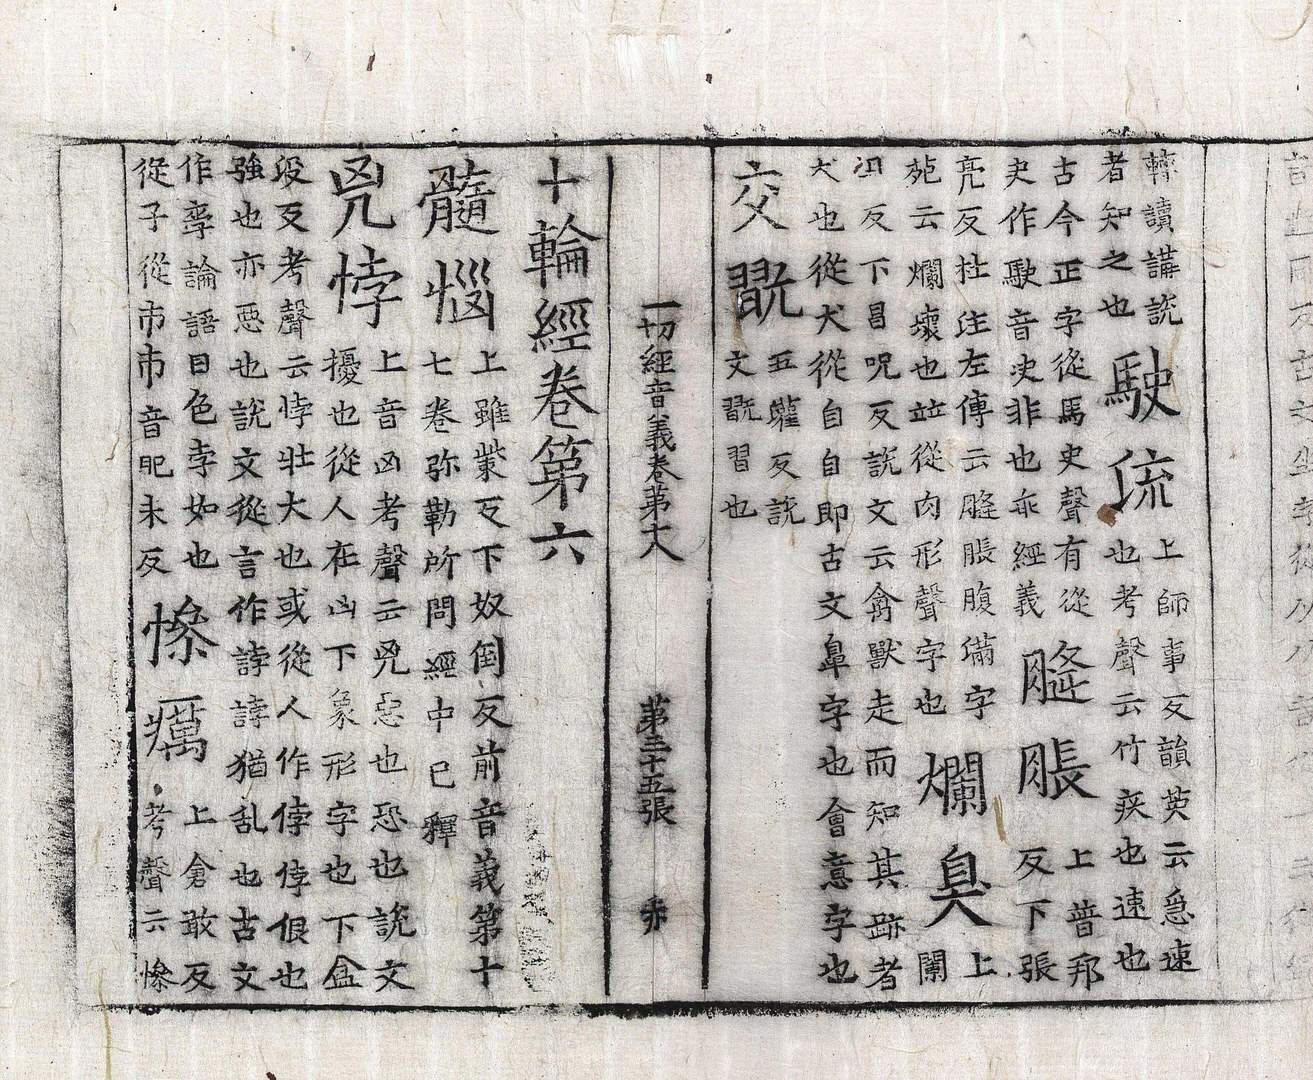 轉讀講説
者知之也
駛流
上師事反韻英云急速
也考聲云竹疾也速也
古今正字從馬史聲有從
史作駛音決非也亦經義
膖脹
上普邦
反下張
亮反杜注左傳云膖脹腹滿字
苑云爛壞也並從肉形聲字也
爛臭
上
闌
反下昌呪反説文云禽獸走而知其跡者
犬也從犬從自自即古文鼻字也會意字也
交翫
五鑵反説
文翫習也
一切經音義卷第十八
第三十五張
赤
十輪經卷第六
髓惱
上雖觜反下奴倒反前音義第十
七卷弥勒所問經中已釋
兇悖
上音凶考聲云兇惡也恐也説文
擾也從人在凶下象形字也下盆
没反考聲云悖壯大也或從人作侼侼佷也
強也亦惡也説文從言作誖誖猶乱也古文
作㪍論語曰色孛如也
從子從巿巿音肥未反
慘癘
上倉敢反
考聲云慘